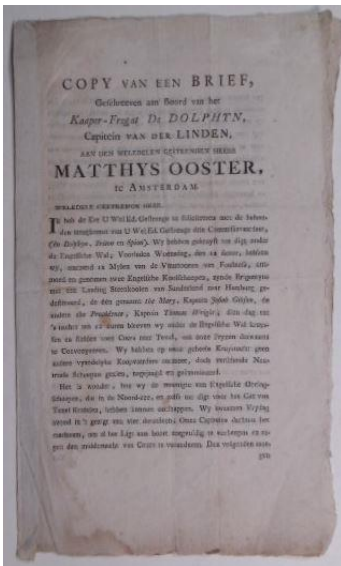 COPY VAN EEN BRIEF,
Geschreeven aan Boord van het
Kaaper-Fregat De DOLPHYN,
Capitein VAN DER LINDEN,
AAN DEN WELEDELEN GESTRENGEN HEERE
MATTHYS OOSTER,
te AMSTERDAM
WELEDELE GESTRENGE HEER.
Ik heb de Eer U Wel Ed. Gestrenge te feliciteren met de behou-
den van U Wel Ed. Gestrenge drie
(de Dolphyn, en Spion). Wy hebben gekruyst tot digt onder
de Engelsche Wal; Voorleden Woensdag, den 12 dezer, hebben
wy, omtrent 12 Mylen van de Vuurtooren van
en genomen twee Engelsche zynde Brigantyns
met een Laading Steenkoolen van Sunderland naar Hamburg ge-
destineerd, de één genaamt the Mary, Kapitein Josuah
andere the Providence, Kapitein Thomas Wright; dien dag tot
's avonds ten 12 uuren bleeven wy onder de Engelsche Wal kruys-
sen en stelden voor Coers naar Texel, om onze Pryzen derwaarts
te Convoyeeren. Wy hebben op onze geheele Kruystogt geen
andere vyandelyke Koopvaarders ontmoet, doch verscheide Neu-
traale Scheepen gezien, en
Het is wonder, hoe wy de menigte van Engelsche Oorlog-
scheepen, die in de Noord-zee, en zelfs tot digt voor het Gat van
Texel kruisten, hebben kunnen ontsnappen. Wy Vrydag
avond in 't gezigt van vier derzelven; Onze Capitein
om al het Ligt aan boord zorgvuldig te en te-
gen den middernacht van Coers te veranderen. Den volgenden mor-
gen